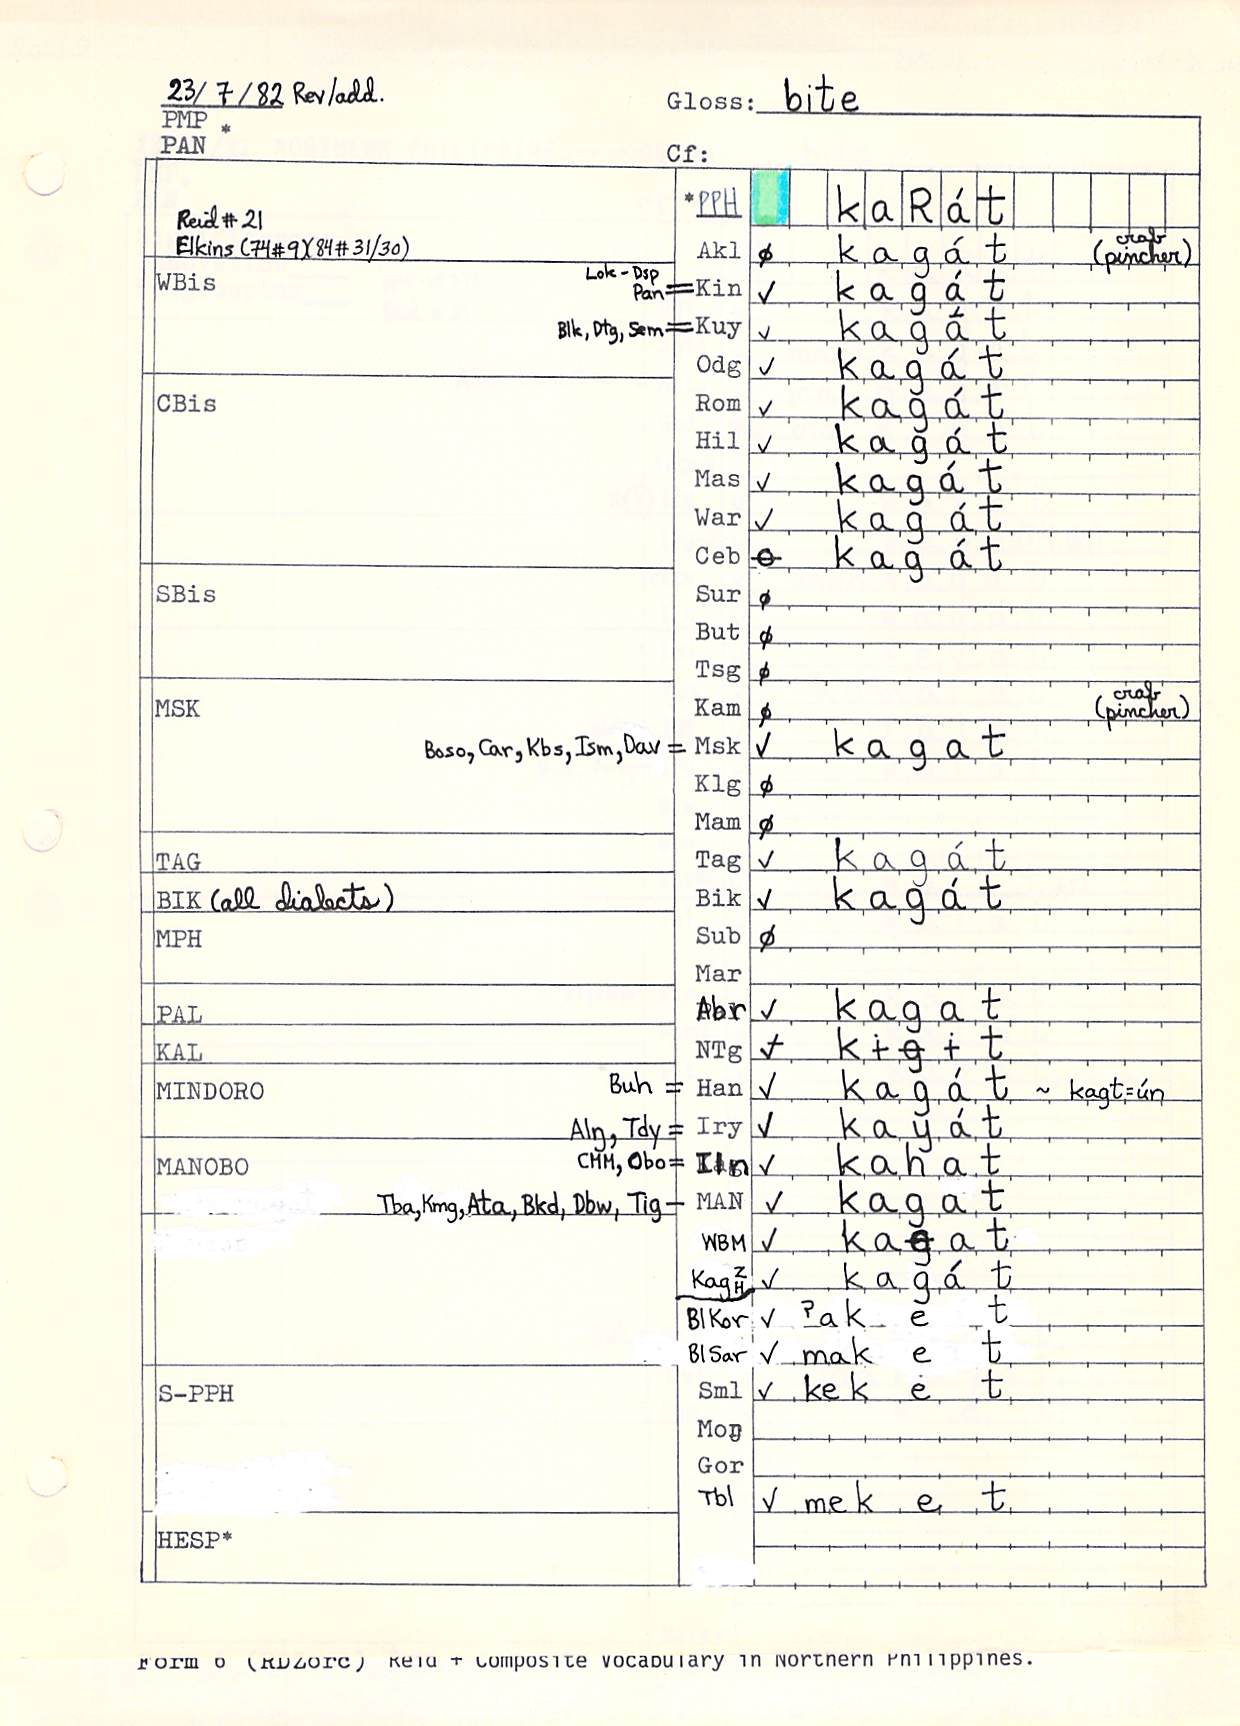 23/7/82 Rev/add.
Gloss: bite
PMP *
PAN
Cf:
*PPH kaRát
Reid # 21
Elkins (74#9)(84#31/30)
Akl ∅ kagát crab (pincher)
WBis Lok-Dsp Pan = Kin ✓ kagát
Blk, Dtg, Sem = Kuy ✓ kagát
Odg ✓ kagát
CBis Rom ✓ kagát
Hil ✓ kagát
Mas ✓ kagát
War ✓ kagát
Ceb kagát
SBis Sur ∅
But ∅
Tsg ∅
MSK Kam ∅ crab (pincher)
Boso, Car, Kbs, Ism, Dav = Msk ✓ kagat
Klg ∅
Mam ∅
TAG Tag ✓ kagát
BIK (all dialects) Bik ✓ kagát
MPH Sub ∅
Mar
PAL Abr ✓ kagat
KAL NTg kɨgɨt
MINDORO Buh = Han ✓ kagát ~ kagt=ún
Aln, Tdy = Iry ✓ kayát
MANOBO CMM, Obo = Iln ✓ kahat
Tba, Kmg, Ata, Bkd, Dbw, Tig - MAN ✓ kagat
WBM ✓ kagat
Kag Z H ✓ kagát
BlKor ✓ ʔaket
BlSar ✓ maket
S-PPH Sml ✓ keket
Moŋ
Gor
Tbl ✓ meket
HESP*
Form 6 (RDZorc) Reid + Composite Vocabulary in Northern Philippines.